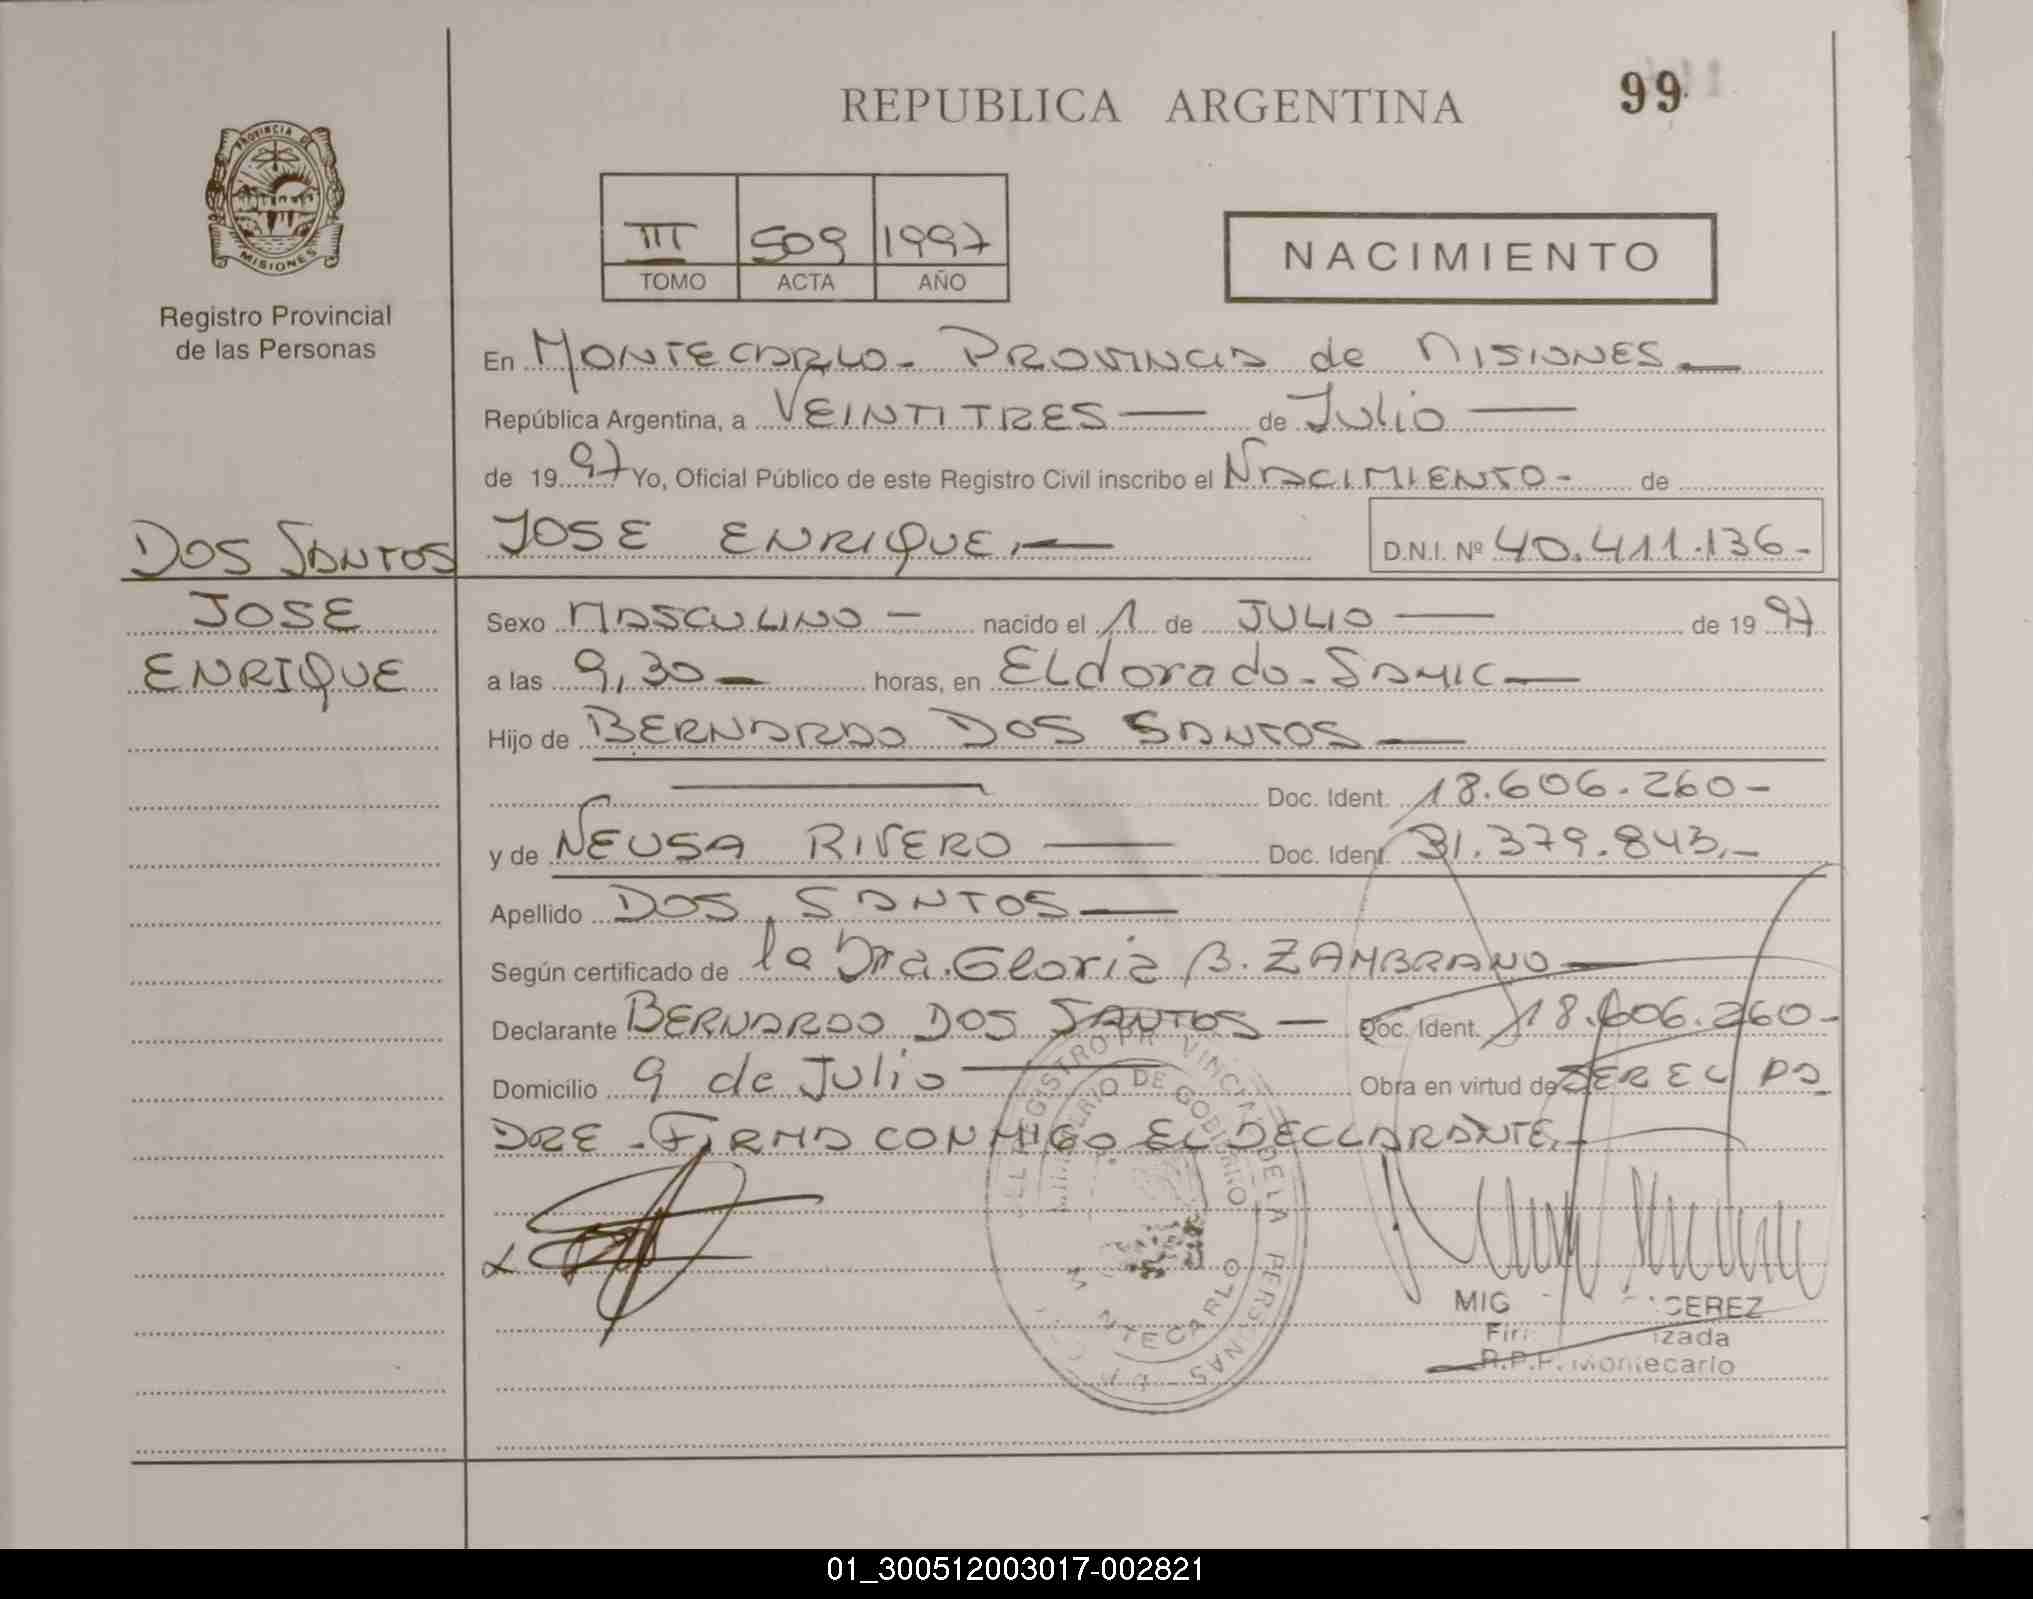 REPUBLICA ARGENTINA
99
PROVINCIA DE
MISIONES
Registro Provincial
de las Personas
III 509 1997
TOMO ACTA AÑO
NACIMIENTO
En MONTECARLO - PROVINCIA de MISIONES
República Argentina, a VEINTITRES de Julio
de 1997 Yo, Oficial Público de este Registro Civil inscribo el NACIMIENTO - de
JOSE ENRIQUE.- D.N.I. Nº 40.411.136-
DOS SANTOS
JOSE
ENRIQUE
Sexo MASCULINO - nacido el 1 de JULIO de 1997
a las 9,30 horas, en ELdorado - SAMIC
Hijo de BERNARDO DOS SANTOS
Doc. Ident. 18.606.260-
y de NEUSA RIVERO Doc. Ident. 31.379.843.-
Apellido DOS SANTOS
Según certificado de la Dra. Gloria B. ZAMBRANO
Declarante BERNARDO DOS SANTOS - Doc. Ident. 18.606.260-
Domicilio 9 de Julio Obra en virtud de SER EL PA
DRE - FIRMA CONMIGO EL DECLARANTE.-
MINISTERIO DE GOBIERNO
DE LA PERSONAS
MONTECARLO
MIG CEREZ
Fir izada
R.P.P. Montecarlo
01_300512003017-002821